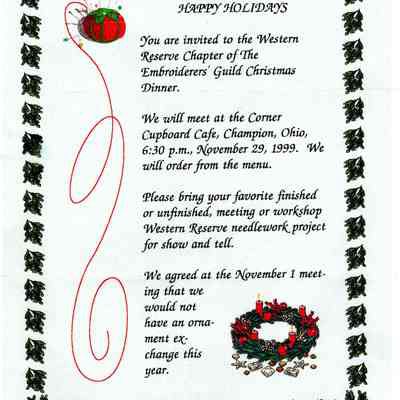 HAPPY HOLIDAYS
You are invited to the Western
Reserve Chapter of The
Embroiderers' Guild Christmas
Dinner.
We will meet at the Corner
Cupboard Cafe, Champion, Ohio,
6:30 p.m., November 29, 1999. We
will order from the menu.
Please bring your favorite finished
or unfinished, meeting or workshop
Western Reserve needlework project
for show and tell.
We agreed at the November 1 meet-
ing that we
would not
have an orna-
ment ex-
change this
year.